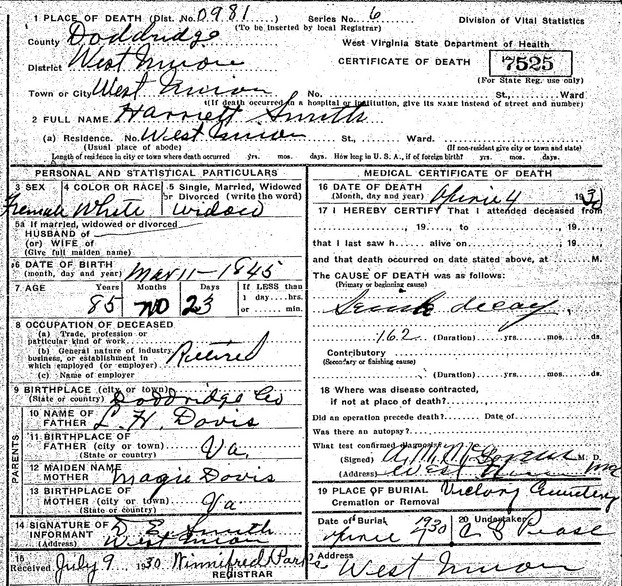 1 PLACE OF DEATH (Dist. No. 0981) Series No. 6 Division of Vital Statistics
(To be inserted by local Registrar)
County Doddridge West Virginia State Department of Health
District West Union CERTIFICATE OF DEATH 7525
(For State Reg. use only)
Town or City West Union No. St., Ward
(If death occurred in a hospital or institution, give its NAME instead of street and number)
2 FULL NAME Harriett Smith
(a) Residence. No. West Union St., Ward.
(Usual place of abode) (If non-resident give city or town and state)
Length of residence in city or town where death occurred yrs. mos. days. How long in U. S. A., if of foreign birth? yrs. mos. days
PERSONAL AND STATISTICAL PARTICULARS
3 SEX 4 COLOR OR RACE 5 Single, Married, Widowed
or Divorced (write the word)
Female White Widow
5a If married, widowed or divorced
HUSBAND of
(or) WIFE of
(Give full maiden name)
6 DATE OF BIRTH
(month, day and year) Mar 11-1845
7 AGE Years Months Days If LESS than
1 day....hrs.
or ...... min.
85 no 23
8 OCCUPATION OF DECEASED
(a) Trade, profession or
particular kind of work
(b) General nature of industry,
business, or establishment in
which employed (or employer) Retired
(c) Name of employer
9 BIRTHPLACE (city or town)
(State or country) Doddridge Co
PARENTS
10 NAME OF
FATHER L. H. Davis
11 BIRTHPLACE OF
FATHER (city or town) Va.
(State or country)
12 MAIDEN NAME
MOTHER Magie Davis
13 BIRTHPLACE OF
MOTHER (city or town) Va
(State or country)
14 SIGNATURE OF
INFORMANT D. E. Smith
(Address) West Union
15
Received July 9 1930 Winnifred Parks
REGISTRAR
MEDICAL CERTIFICATE OF DEATH
16 DATE OF DEATH
(Month, day and year) 4 1930
17 I HEREBY CERTIFY That I attended deceased from
, 19 , to , 19 ,
that I last saw h alive on , 19 ,
and that death occurred on date stated above, at M.
The CAUSE OF DEATH was as follows:
(Primary or beginning cause)
decay
162 (Duration) yrs. mos. ds.
Contributory
(Secondary or finishing cause)
(Duration) yrs. mos. ds.
18 Where was disease contracted,
if not at place of death?
Did an operation precede death? Date of
Was there an autopsy?
What test confirmed diagnosis?
(Signed) M. D.
(Address) West
19 PLACE OF BURIAL Victory Cemetery
Cremation or Removal
Date of Burial 1930 20 Undertaker
Pease
Address
West Union